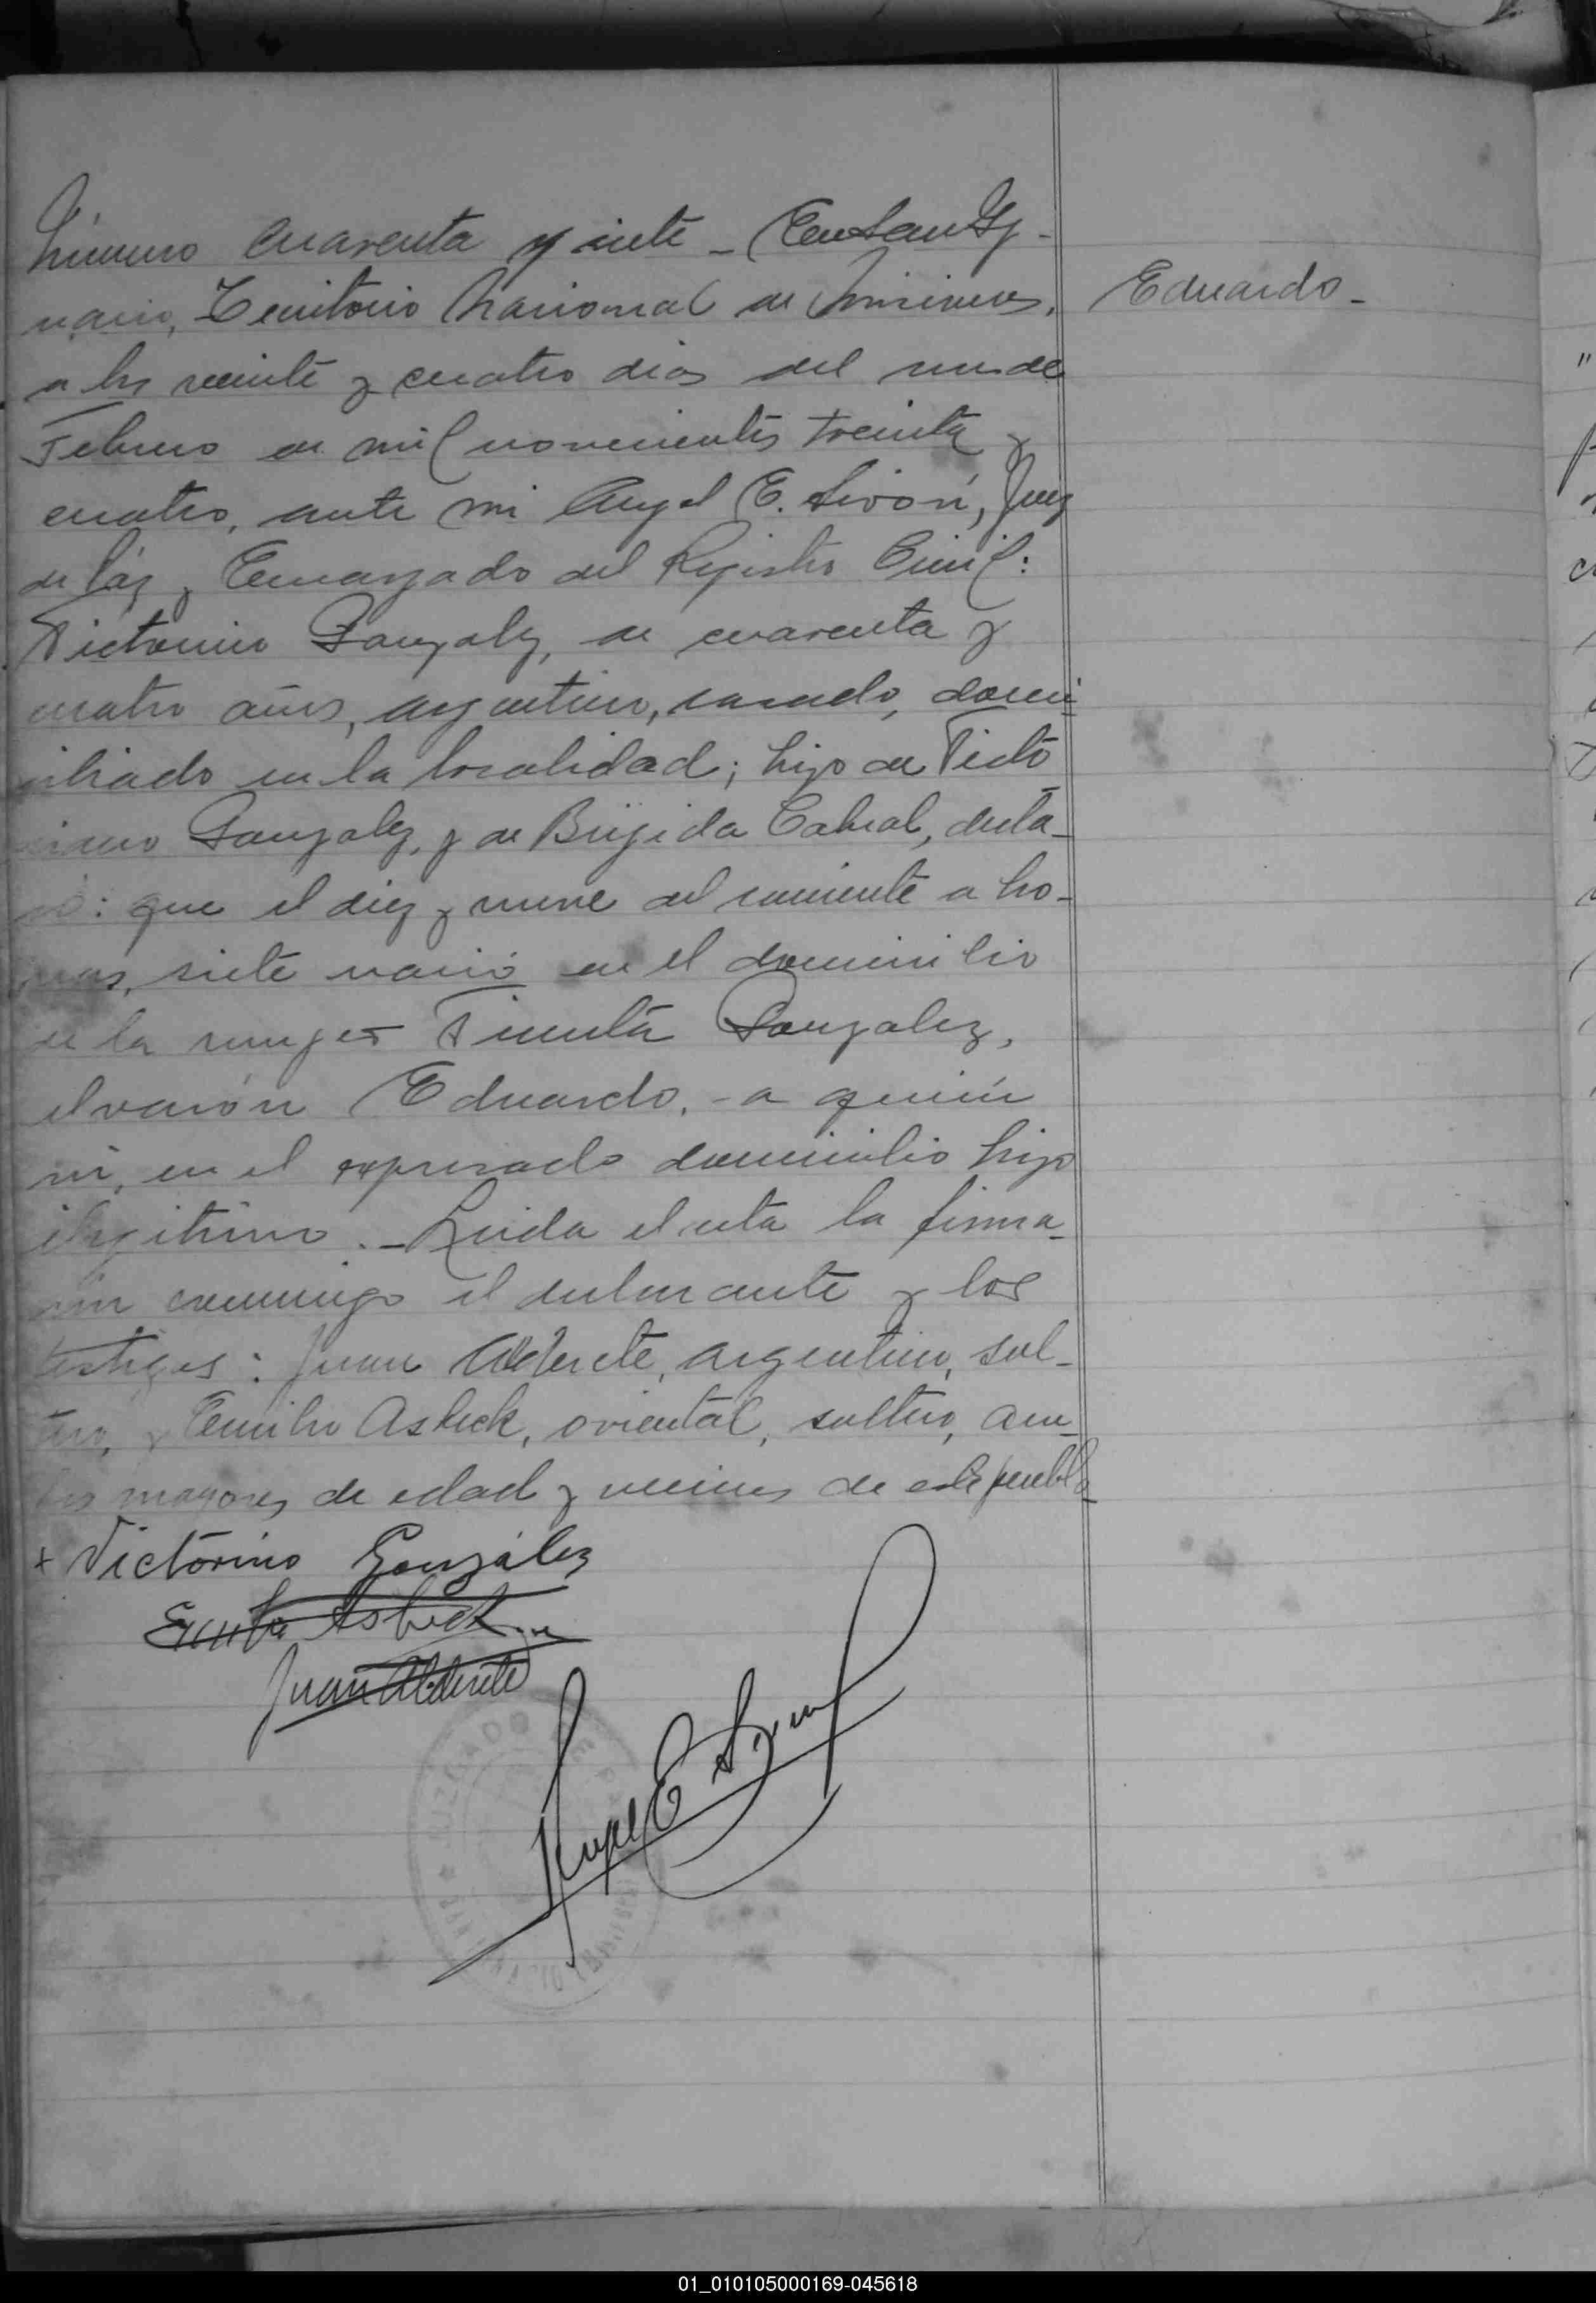 Número Cuarenta y siete - En San Ig-
nacio, Territorio Nacional de Misiones,
a los veinte y cuatro dias del mes de
Febrero de mil novecientos treinta y
cuatro, ante mi Angel E. Sirón, Juez
de Páz y Encargado del Registro Civil:
Victorino Gonzalez, de cuarenta y
cuatro años, argentino, casado, domi
ciliado en la localidad; hijo de Victo
riano Gonzalez, y de Brigida Cabral, decla-
ró: que el diez y nueve del corriente a ho-
ras, siete nació en el domicilio
de la mujer Gonzalez,
el varón Eduardo, - a quién
ví, en el expresado domicilio hijo
ilegitimo. - Leida el acta la firma-
rón conmigo el declarante y los
testigos: Juan Alderete, argentino, sol-
tero, y Emilio Asbeck, oriental, soltero, am-
bos mayores de edad y vecinos de este pueblo
Eduardo -
+ Victorino González
Emilio Asbeck
Juan Alderete
Angel E Sirón
JUZGADO
01_010105000169-045618